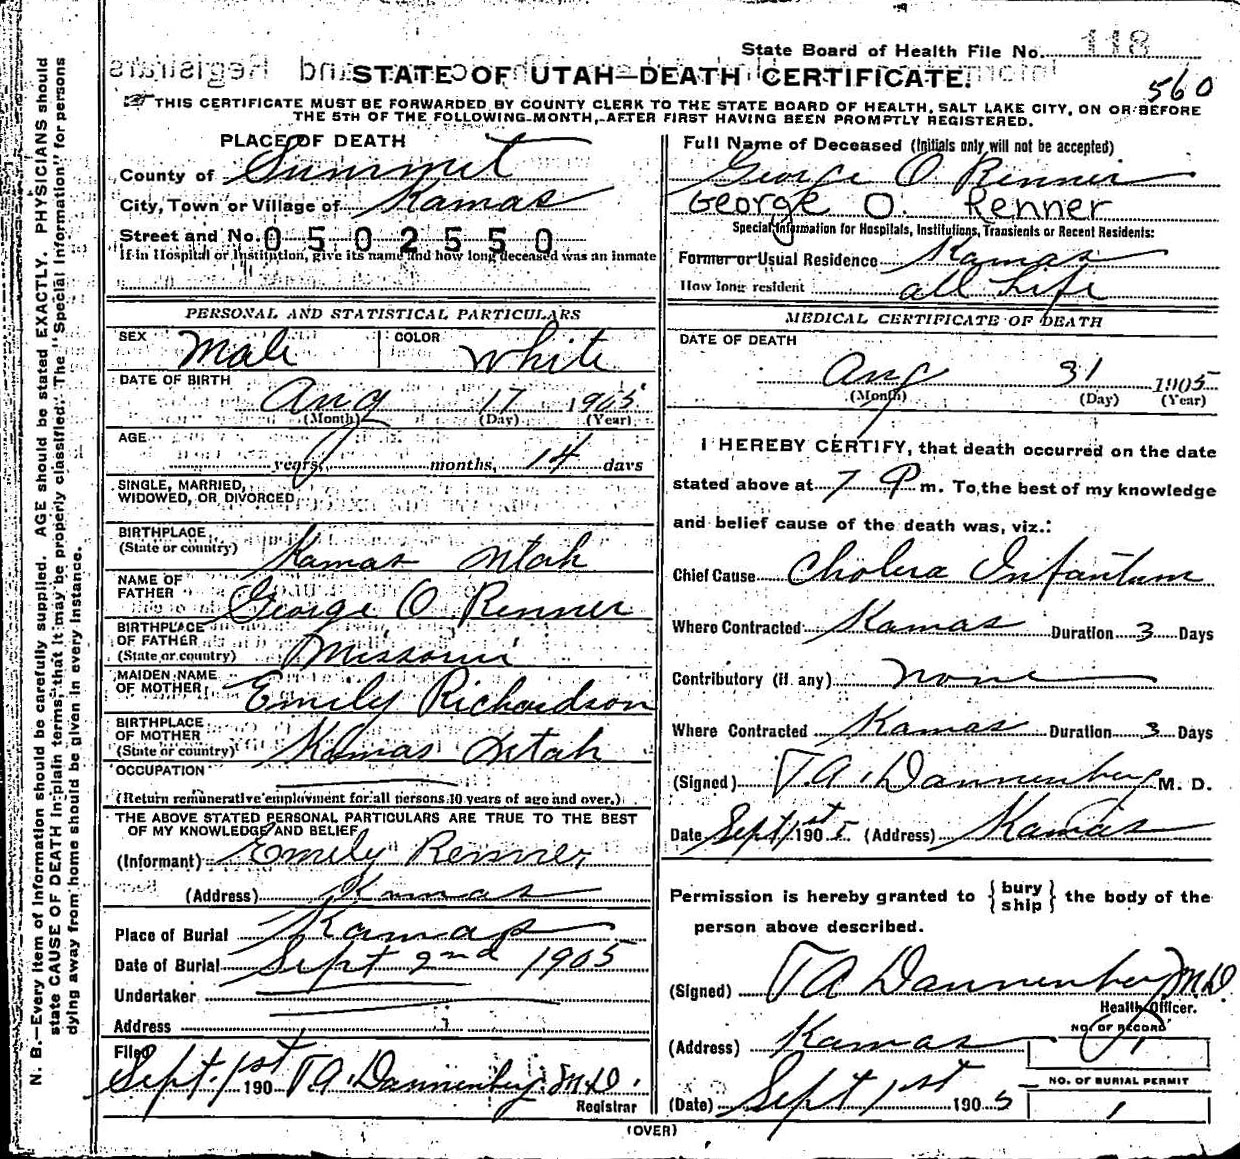 State Board of Health File No. 118
STATE OF UTAH—DEATH CERTIFICATE.
560
THIS CERTIFICATE MUST BE FORWARDED BY COUNTY CLERK TO THE STATE BOARD OF HEALTH, SALT LAKE CITY, ON OR BEFORE
THE 5TH OF THE FOLLOWING MONTH, AFTER FIRST HAVING BEEN PROMPTLY REGISTERED.
PLACE OF DEATH
County of Summit
City, Town or Village of Kamas
Street and No. 0502550
If in Hospital or Institution, give its name and how long deceased was an inmate
PERSONAL AND STATISTICAL PARTICULARS
SEX Male COLOR White
DATE OF BIRTH
Aug 17 1905
(Month) (Day) (Year)
AGE
years, months, 14 days
SINGLE, MARRIED,
WIDOWED, OR DIVORCED
BIRTHPLACE
(State or country) Kamas Utah
NAME OF
FATHER George O Renner
BIRTHPLACE
OF FATHER
(State or country) Missouri
MAIDEN NAME
OF MOTHER Emily Richardson
BIRTHPLACE
OF MOTHER
(State or country) Kamas Utah
OCCUPATION
(Return remunerative employment for all persons 10 years of age and over.)
THE ABOVE STATED PERSONAL PARTICULARS ARE TRUE TO THE BEST
OF MY KNOWLEDGE AND BELIEF
(Informant) Emely Renner
(Address) Kamas
Place of Burial Kamas
Date of Burial Sept 2nd 1905
Undertaker
Address
Filed
Sept. 1st 190 T.A. Dannenberg M.D.
Registrar
Full Name of Deceased (Initials only will not be accepted)
George O Renner
George O. Renner
Special Information for Hospitals, Institutions, Transients or Recent Residents:
Former or Usual Residence Kamas
How long resident all Life
MEDICAL CERTIFICATE OF DEATH
DATE OF DEATH
Aug 31 1905
(Month) (Day) (Year)
I HEREBY CERTIFY, that death occurred on the date
stated above at 7 P m. To the best of my knowledge
and belief cause of the death was, viz.:
Chief Cause Cholera Infantum
Where Contracted Kamas Duration 3 Days
Contributory (if any) none
Where Contracted Kamas Duration 3 Days
(Signed) T.A. Dannenberg M. D.
Date Sept 1st 1905 (Address) Kamas
Permission is hereby granted to {bury ship} the body of the
person above described.
(Signed) T A Dannenberg M.D.
Health Officer.
(Address) Kamas
NO. OF RECORD
(Date) Sept 1st 1905
NO. OF BURIAL PERMIT
1
(OVER)
N. B.—Every item of information should be carefully supplied. AGE should be stated EXACTLY. PHYSICIANS should
state CAUSE OF DEATH in plain terms, that it may be properly classified. The "Special Information" for persons
dying away from home should be given in every instance.